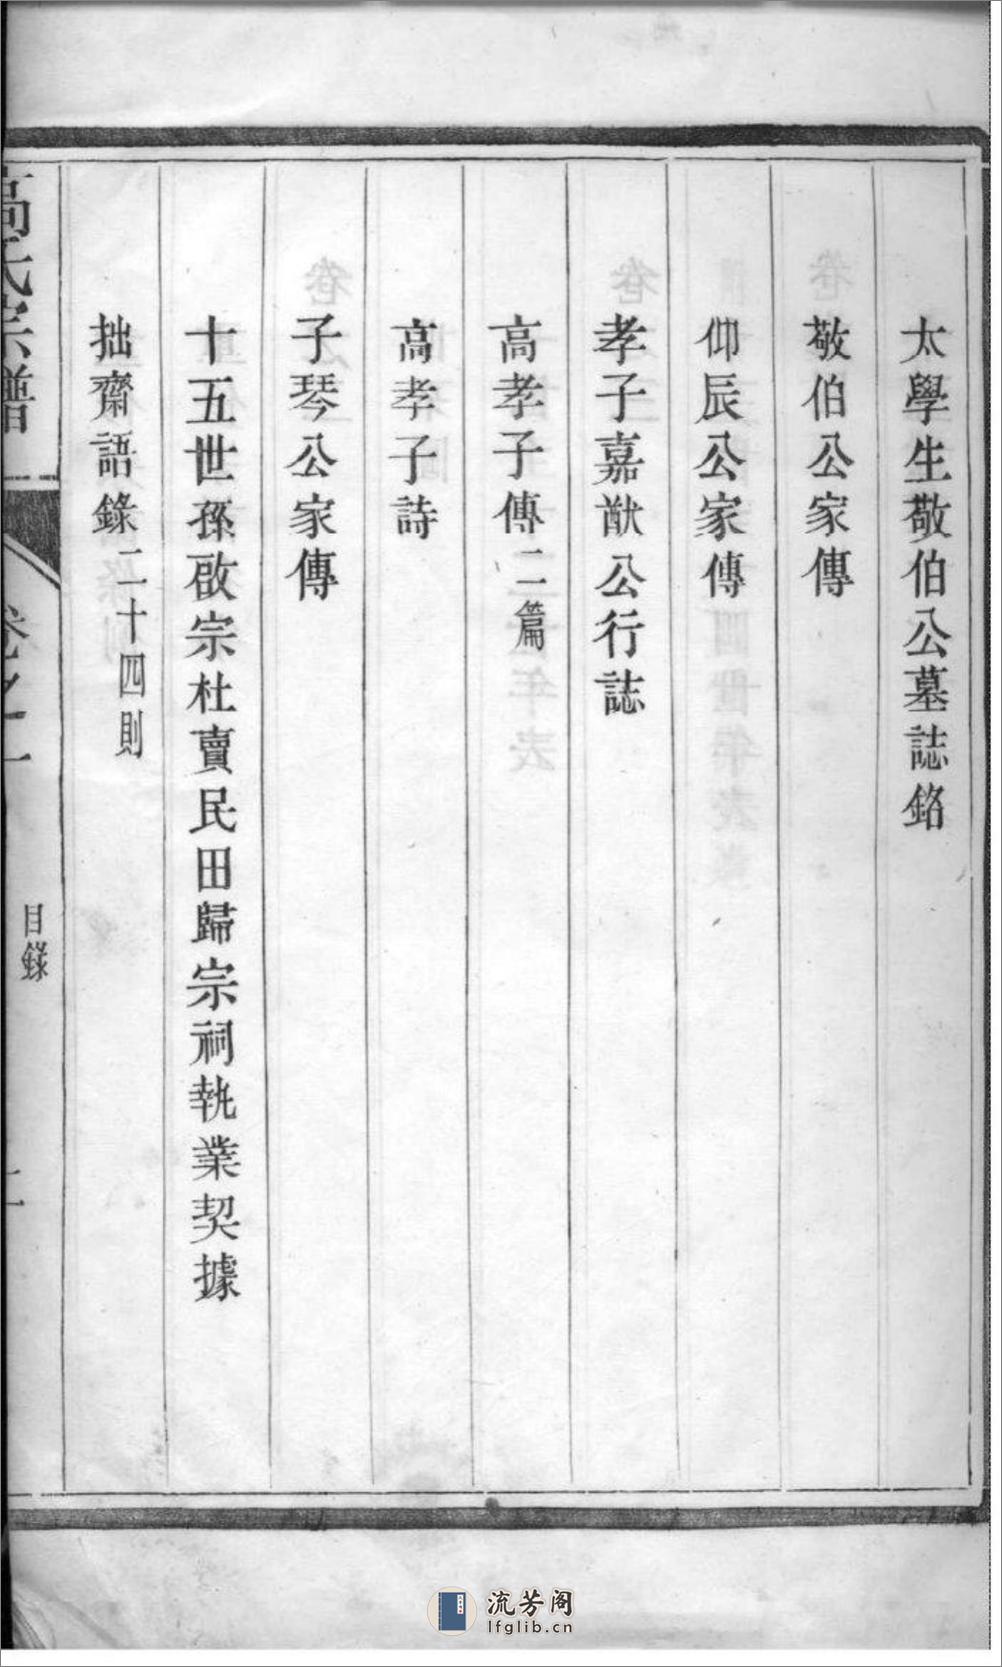 太學生敬伯公墓誌銘
敬伯公家傳
仰辰公家傳
孝子嘉猷公行誌
高孝子傳二篇
高孝子詩
子琴公家傳
十五世孫啟宗杜賣民田歸宗祠執業契據
拙齋語錄二十四則
高氏宗譜 卷之一 目錄 二
流芳阁
lfglib.cn